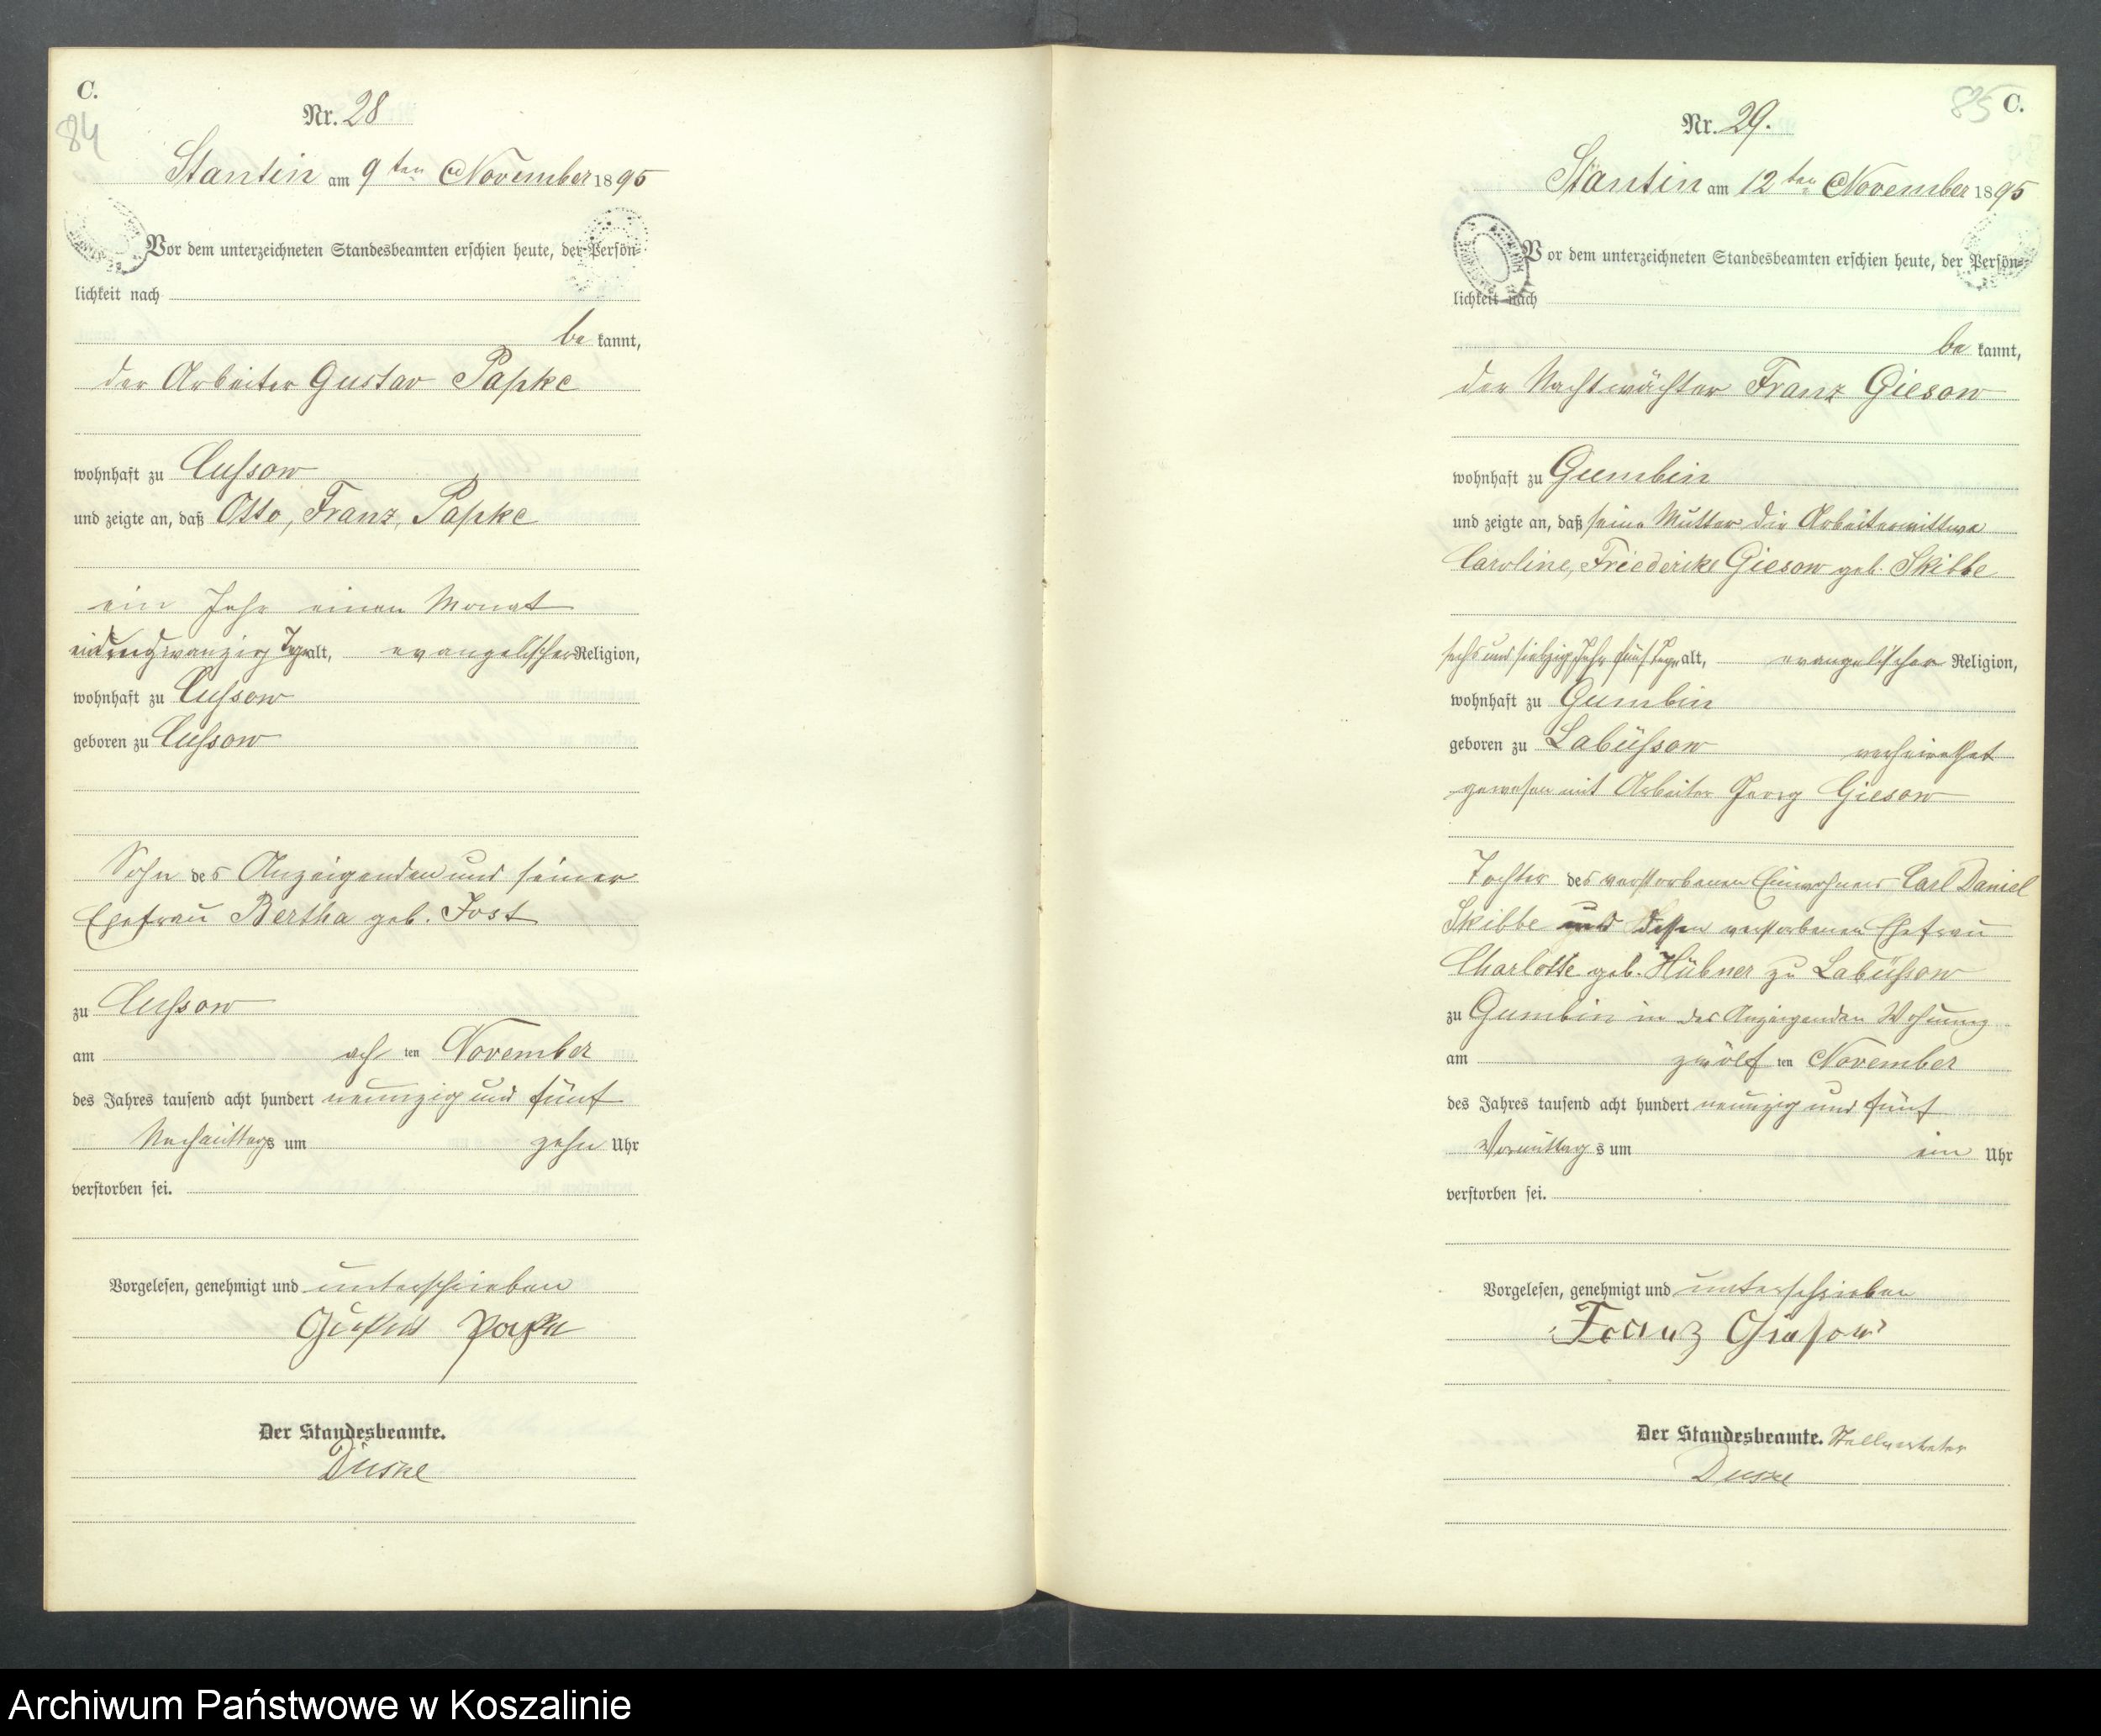 C.
84
Nr. 28
Stantin am 9ten November 1895
Vor dem unterzeichneten Standesbeamten erschien heute, der Persön-
lichkeit nach
be kannt,
der Arbeiter Gustav Papke
wohnhaft zu Cussow
und zeigte an, daß Otto, Franz, Papke
ein Jahr einen Monat
einundzwanzig Tage alt, evangelischer Religion,
wohnhaft zu Cussow
geboren zu Cussow
Sohn des Anzeigenden und seiner
Ehefrau Bertha geb. Jost
zu Cussow
am achten November
des Jahres tausend acht hundert neunzig und fünf
Nachmittags um zehn Uhr
verstorben sei.
Vorgelesen, genehmigt und unterschrieben
Gustav Papke
Der Standesbeamte.
Duske
85 C.
Nr. 29.
Stantin am 12ten November 1895
Vor dem unterzeichneten Standesbeamten erschien heute, der Persön-
lichkeit nach
be kannt,
der Nachtwächter Franz Giesow
wohnhaft zu Gumbin
und zeigte an, daß seine Mutter die Arbeiterwittwe
Caroline, Friederike Giesow geb. Skibbe
sechs und siebzig Jahr fünf Tage alt, evangelischer Religion,
wohnhaft zu Gumbin
geboren zu Labüssow verheirathet
gewesen mit Arbeiter Georg Giesow
Tochter des verstorbenen Einwohners Carl Daniel
Skibbe und dessen verstorbenen Ehefrau
Charlotte geb. Hübner zu Labüssow
zu Gumbin in des Anzeigenden Wohnung
am zwölften November
des Jahres tausend acht hundert neunzig und fünf
Vormittags um ein Uhr
verstorben sei.
Vorgelesen, genehmigt und unterschrieben
Franz Giesow
Der Standesbeamte. Stellvertreter
Duske
Archiwum Państwowe w Koszalinie